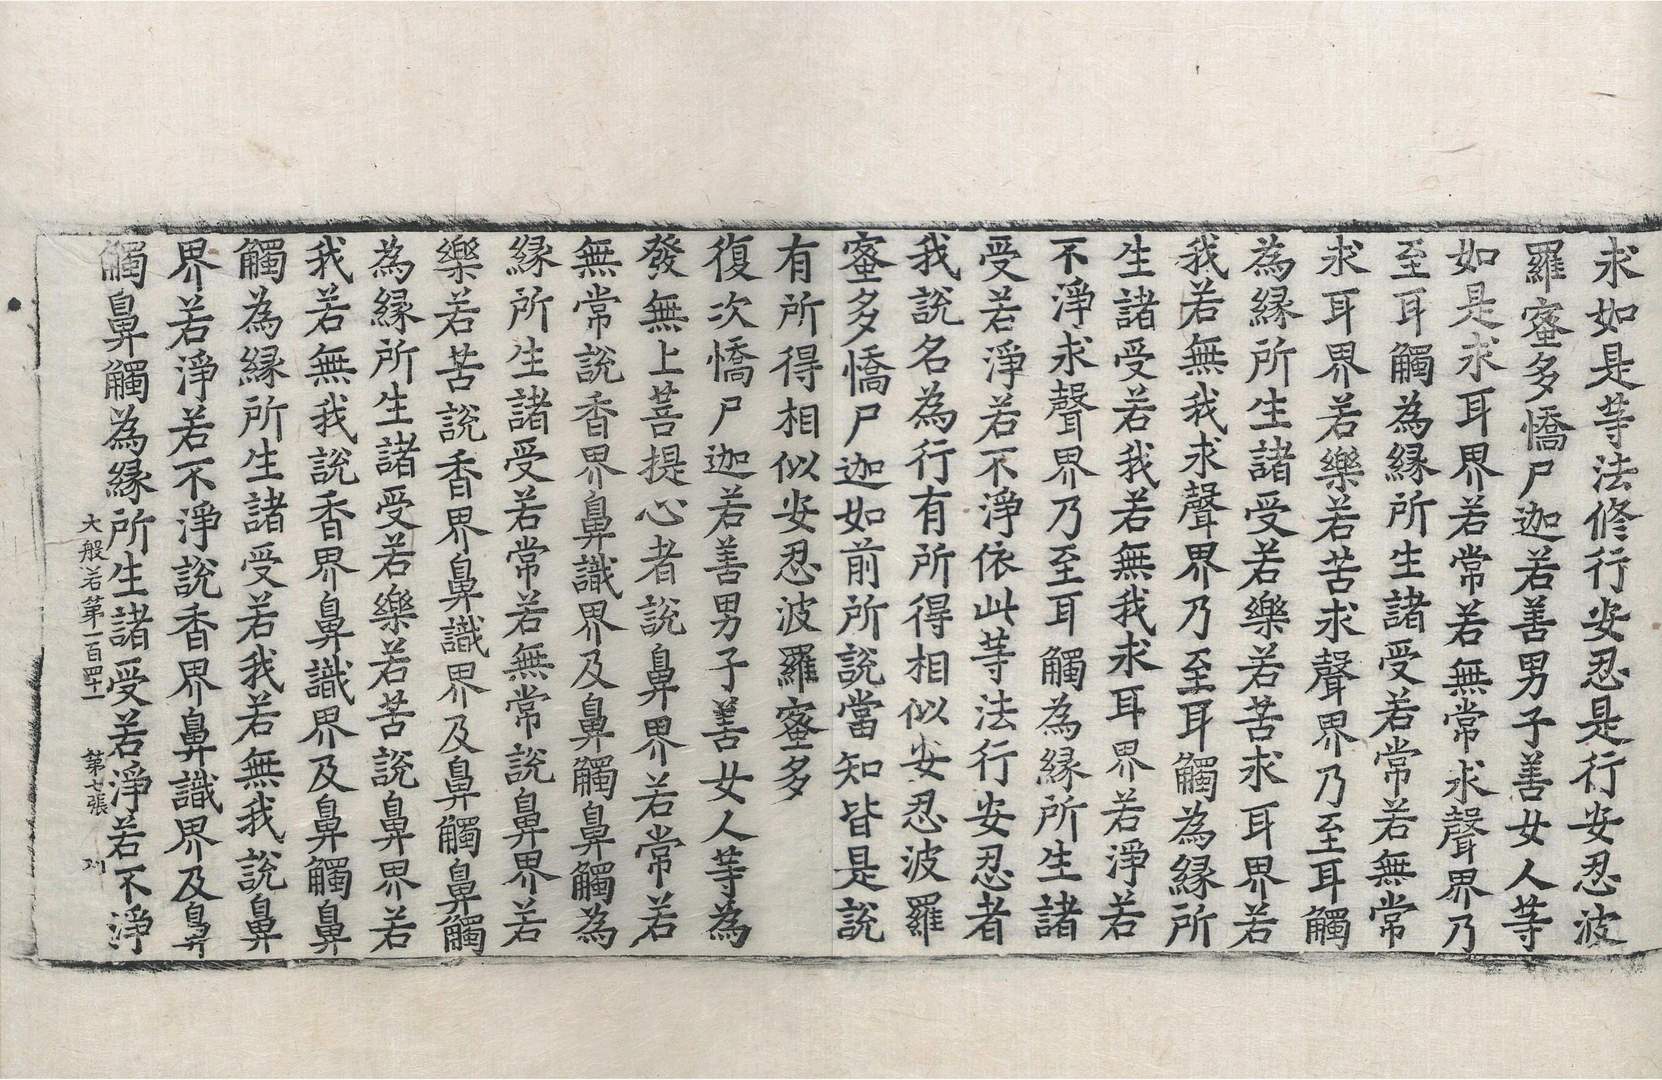 求如是等法修行安忍是行安忍波
羅蜜多憍尸迦若善男子善女人等
如是求耳界若常若無常求聲界乃
至耳觸為縁所生諸受若常若無常
求耳界若樂若苦求聲界乃至耳觸
為縁所生諸受若樂若苦求耳界若
我若無我求聲界乃至耳觸為縁所
生諸受若我若無我求耳界若淨若
不淨求聲界乃至耳觸為縁所生諸
受若淨若不淨依此等法行安忍者
我說名為行有所得相似安忍波羅
蜜多憍尸迦如前所說當知皆是說
有所得相似安忍波羅蜜多
復次憍尸迦若善男子善女人等為
發無上菩提心者說鼻界若常若
無常說香界鼻識界及鼻觸鼻觸為
縁所生諸受若常若無常說鼻界若
樂若苦說香界鼻識界及鼻觸鼻觸
為縁所生諸受若樂若苦說鼻界若
我若無我說香界鼻識界及鼻觸鼻
觸為縁所生諸受若我若無我說鼻
界若淨若不淨說香界鼻識界及鼻
觸鼻觸為縁所生諸受若淨若不淨
大般若第一百四十一 第七張